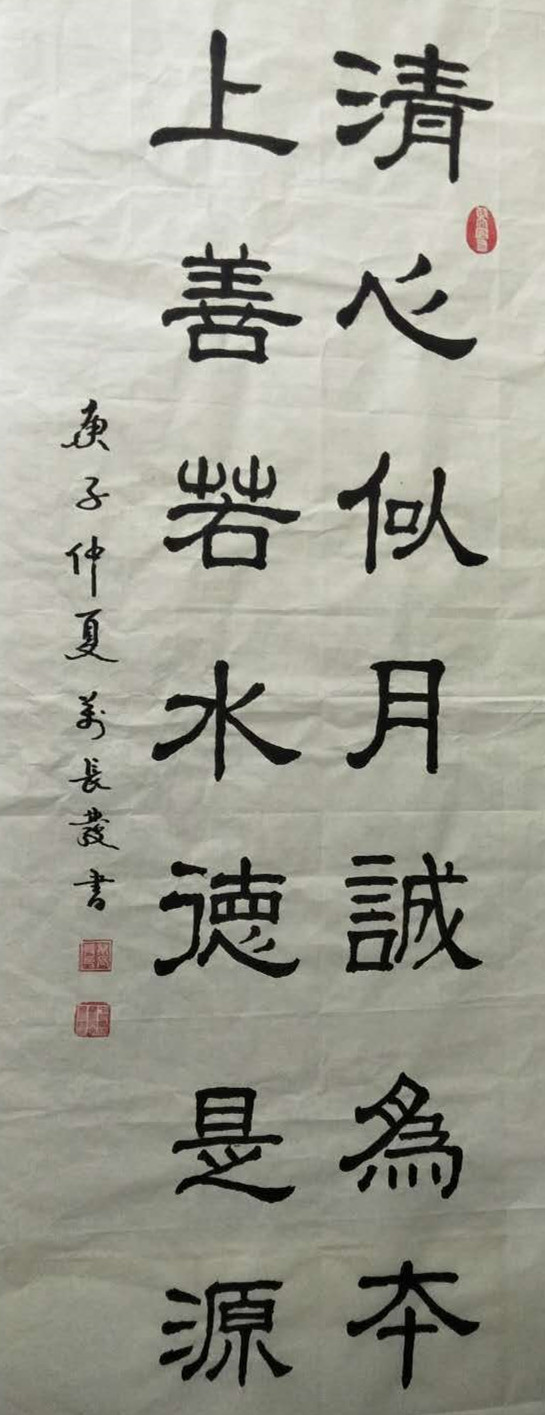 清心似月誠為本
上善若水德是源
庚子仲夏萬長發書